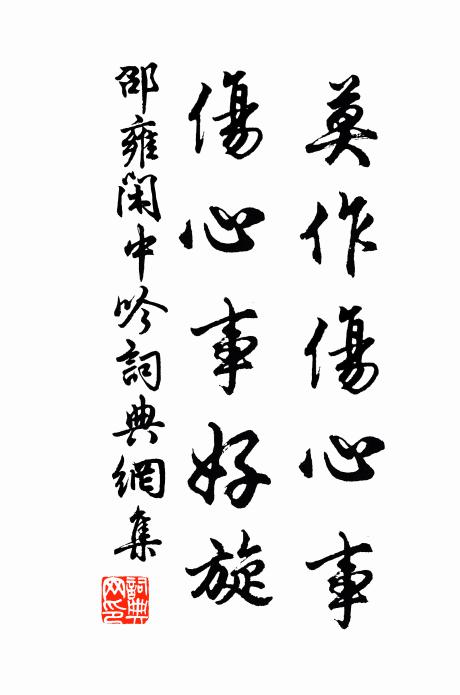 莫作傷心事
傷心事好旋
邵雍閑中吟詞典網集
詞典網印